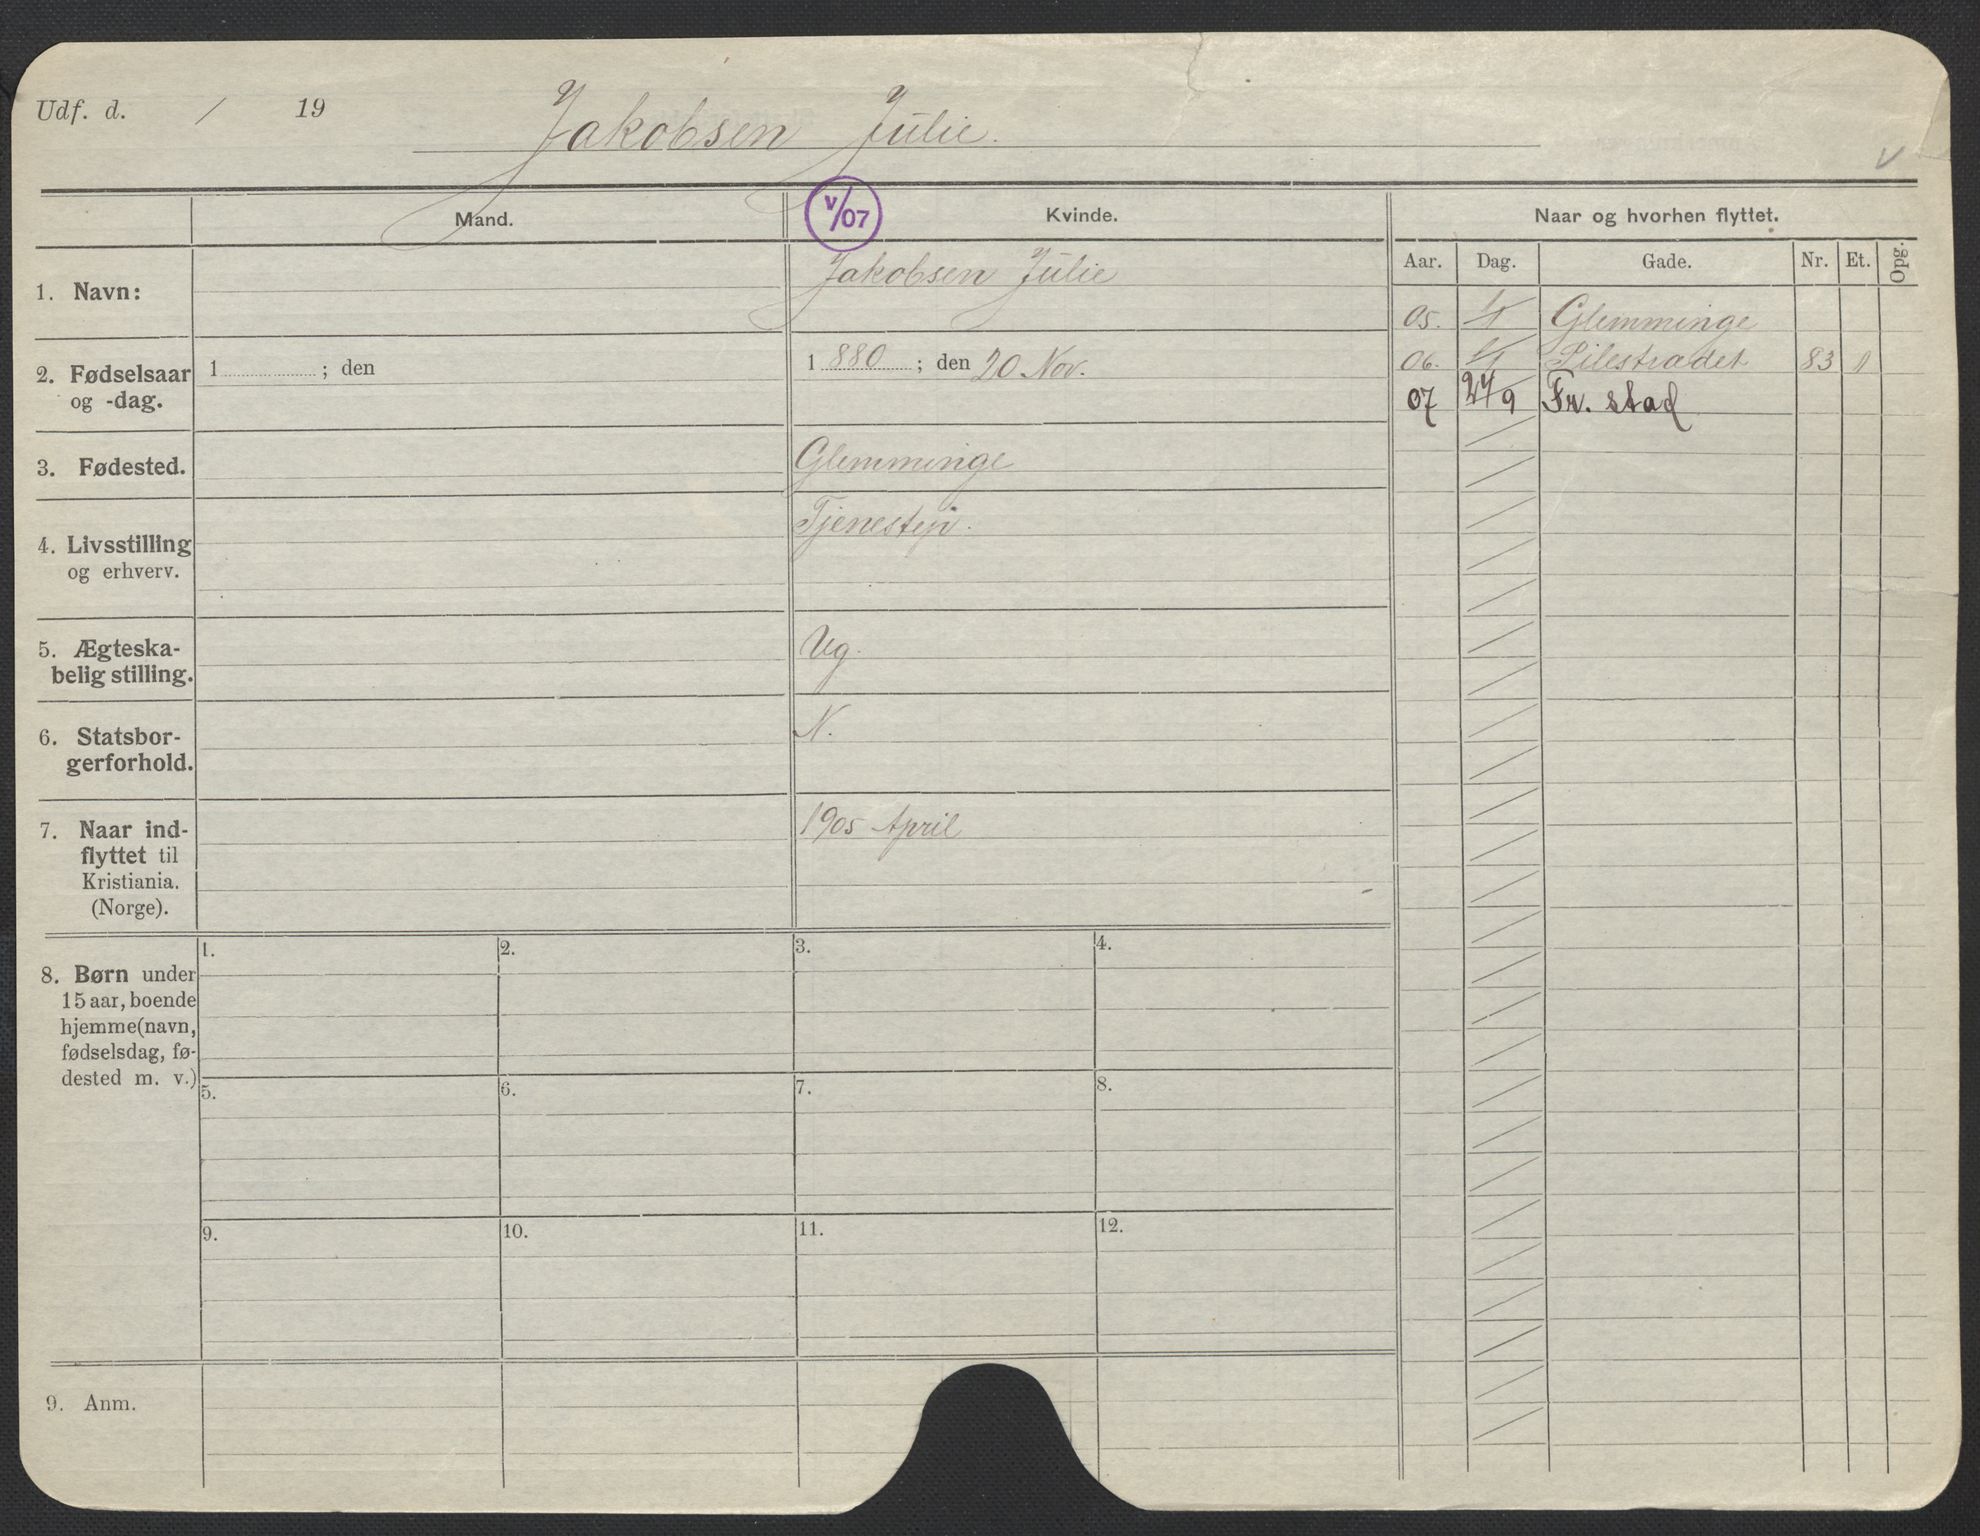 Udf. d. / 19
Jakobsen Julie.
v
Mand.
V/07
Kvinde.
Naar og hvorhen flyttet.
Aar. Dag. Gade. Nr. Et. Opg.
1. Navn:
Jakobsen Julie
05. Glemminge
06. Pilestrædet 83
07 27/9 Fr. stad
2. Fødselsaar
og -dag.
1 ; den
1 880 ; den 20 Nov.
3. Fødested.
Glemminge
4. Livsstilling
og erhverv.
Tjenestepi.
5. Ægteska-
belig stilling.
Ug.
6. Statsbor-
gerforhold.
N.
7. Naar ind-
flyttet til
Kristiania.
(Norge).
1905 April
8. Børn under
15 aar, boende
hjemme (navn,
fødselsdag, fø-
dested m. v.)
1. 2. 3. 4.
5. 6. 7. 8.
9. 10. 11. 12.
9. Anm.